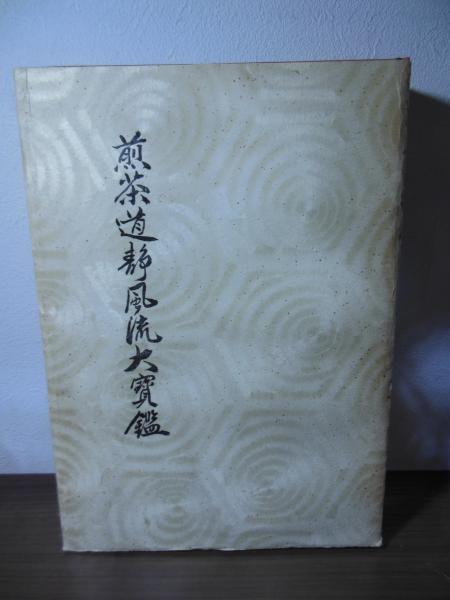 煎茶道静風流大寶鑑